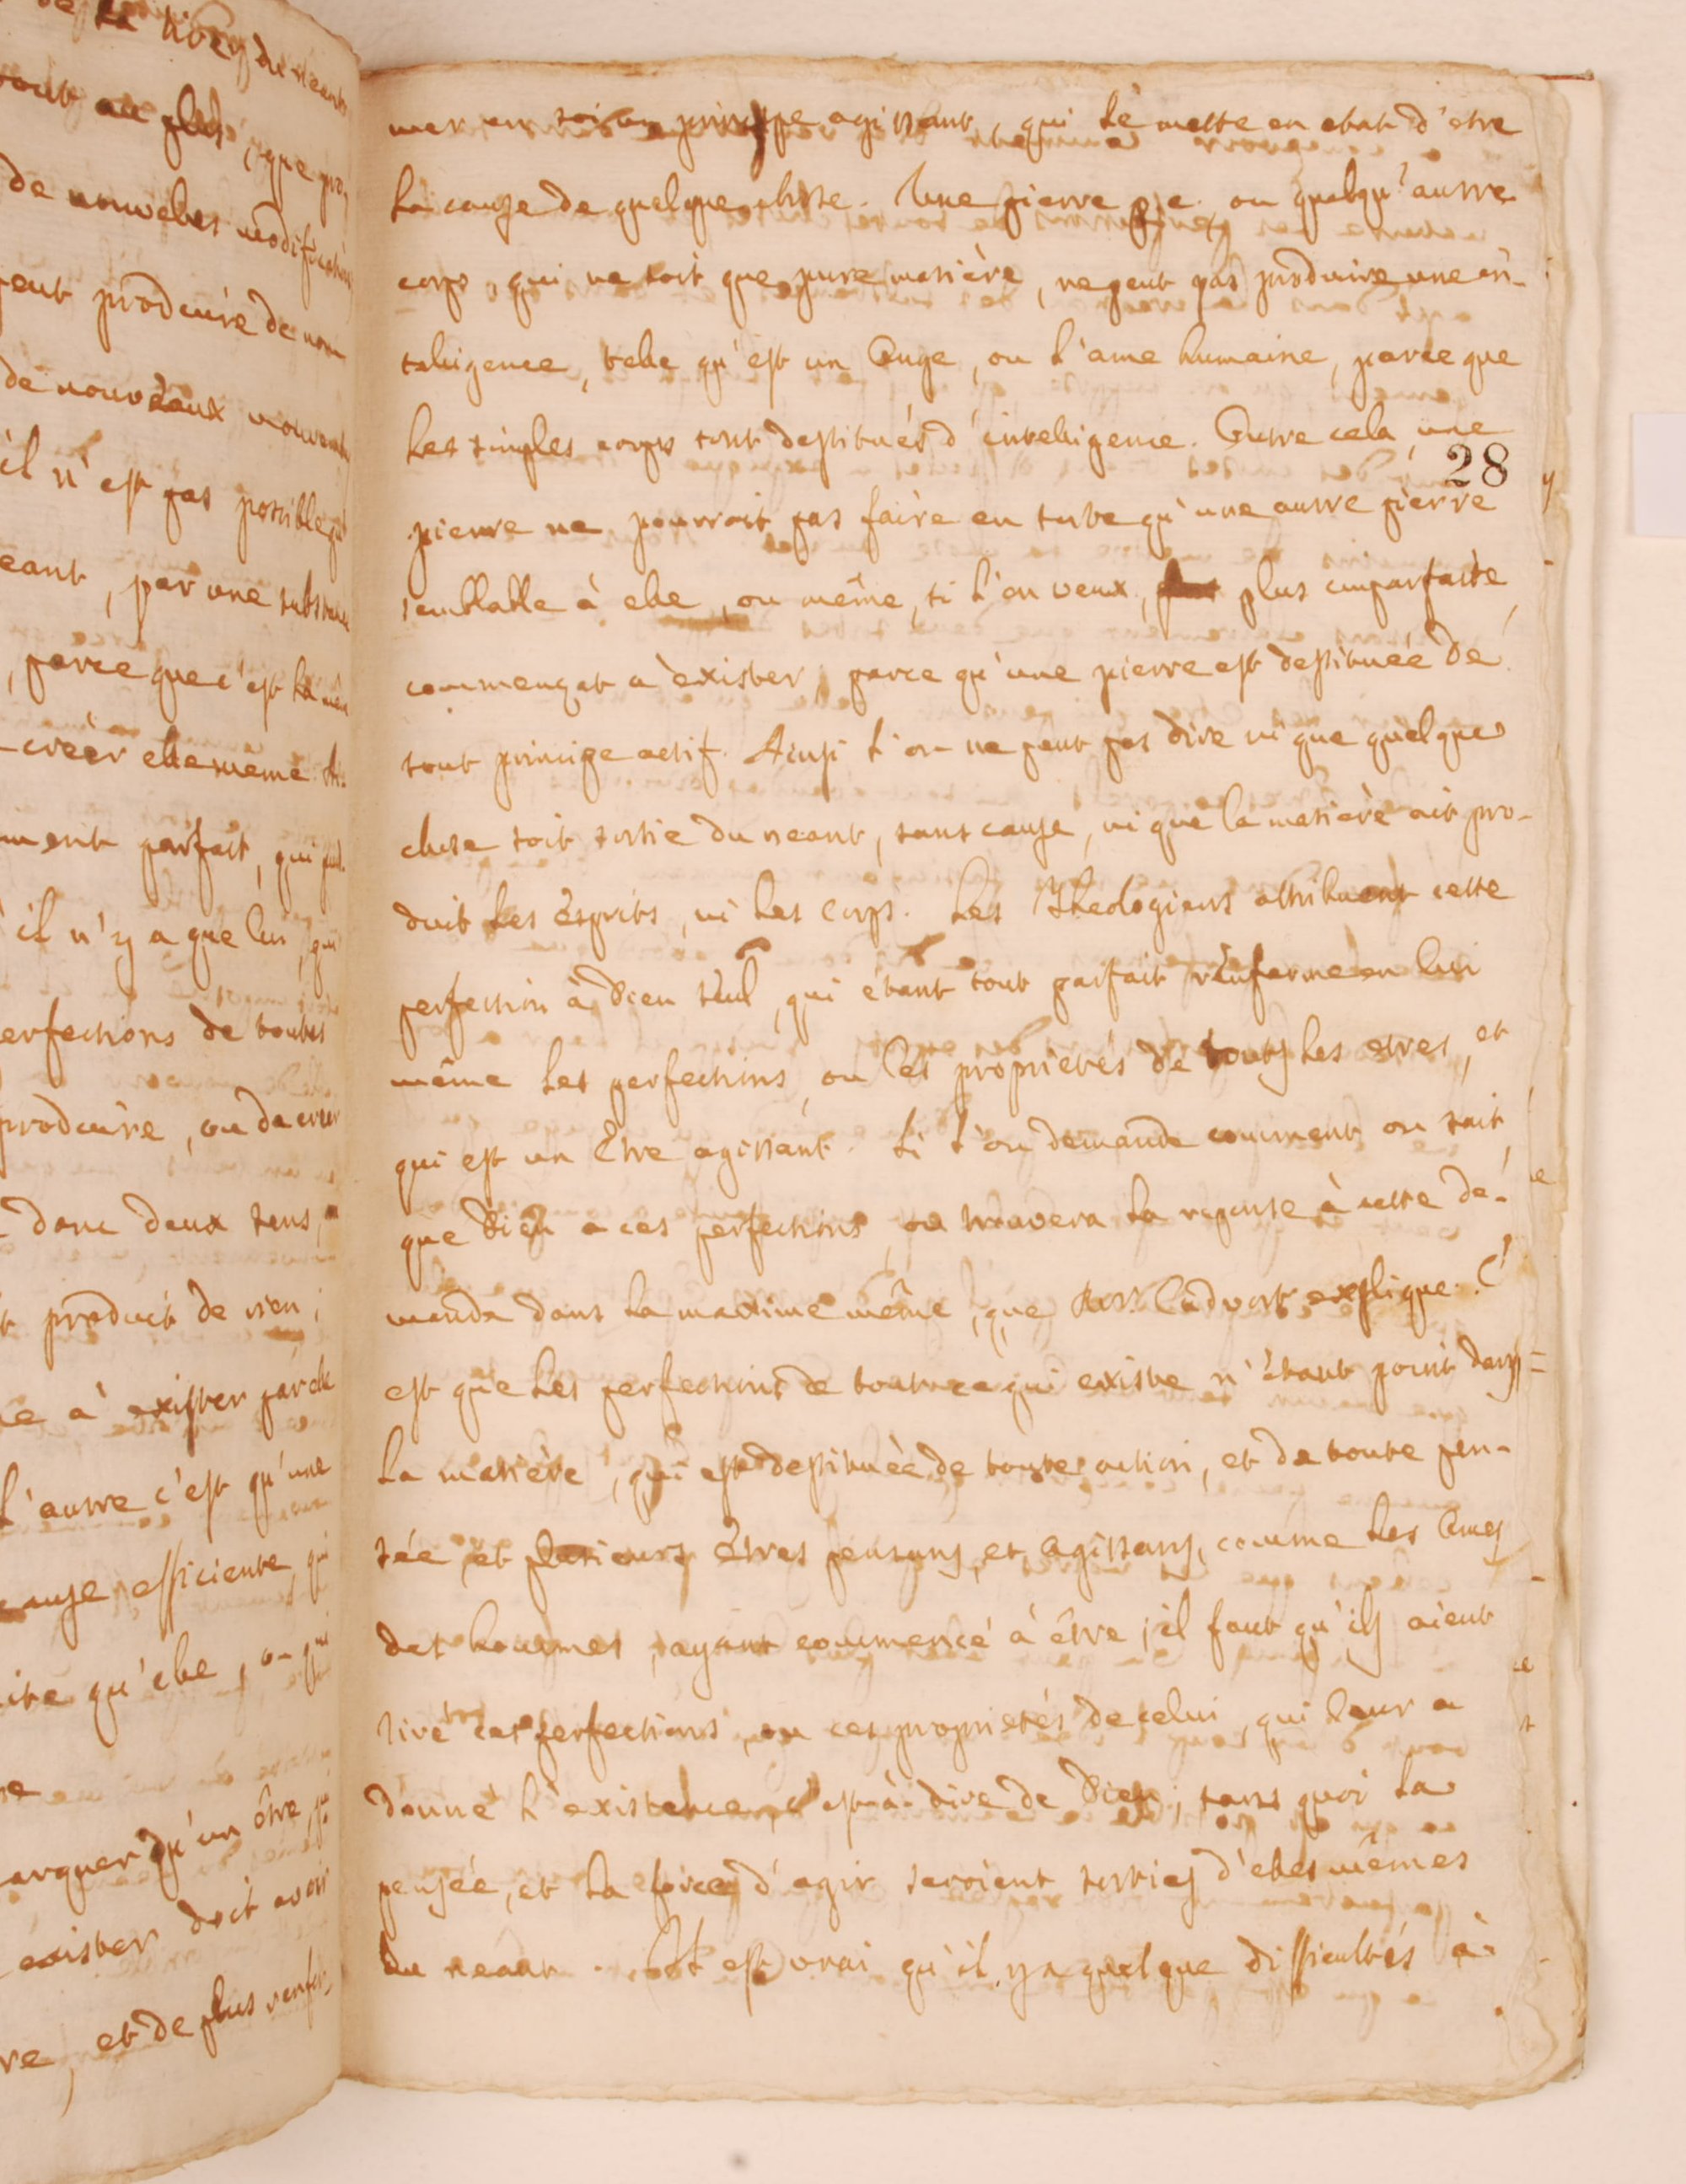 de la tirer du neant
tout au plus, que pro-
de nouvelles modifications
peut produire de nou-
de nouveaux
il n'est pas possible
eant, par une substance
, parce que c'est la même
créer elle même
ment parfait, qui
il n'y a que lui, qui
erfections de toutes
produire, ou de créer
donc deux sens,
t produit de rien;
à exister par elle
L'autre c'est qu'une
cause efficiente, qui
ite qu'elle, ou qui
arquer qu'un être,
exister doit avoir
re, et de plus renfer-
mer en soi un principe agissant, qui le mette en etat d'etre
la cause de quelque chose. Une pierre p. e. ou quelqu'autre
corps, qui ne soit que pure matière, ne peut pas produire une in-
telligence, telle qu'est un Ange, ou l'ame humaine, parce que
les simples corps sont destitués d'intelligence. Outre cela, une
28
pierre ne pourroit pas faire en sorte qu'une autre pierre
semblable à elle, ou même, si l'on veux, plus imparfaite,
commençat a exister, parce qu'une pierre est destituée de
tout principe actif. Ainsi l'on ne peut pas dire ni que quelque
chose soit sortie du neant, sans cause, ni que la matière ait pro-
duit les Esprits, ni les Corps. Les Theologiens attribuent cette
perfection à Dieu seul, qui étant tout parfait renferme en lui
même les perfections, ou les proprietés de touts les etres, et
qui est un Etre agissant. Si l'on demande comment on sait,
que Dieu a ces perfections, on trouvera la reponse à cette de-
mande dans la maxime même, que Mr. Cudvort explique. C'
est que les perfections de tout ce qui existe n'étant point dans
la matière, qui est destituée de toute action, et de toute pen-
sée, et plusieurs Etres pensans, et agissans, comme les Ames
des hommes, ayant commencé à être, il faut qu'ils aient
tiré ces perfections, ou ces proprietés de celui, qui leur a
donné l'existence, c'est-à-dire de Dieu; sans quoi la
pensée, et la force d'agir seroient sorties d'elles mêmes
du neant. Il est vrai qu'il y a quelque difficultés à